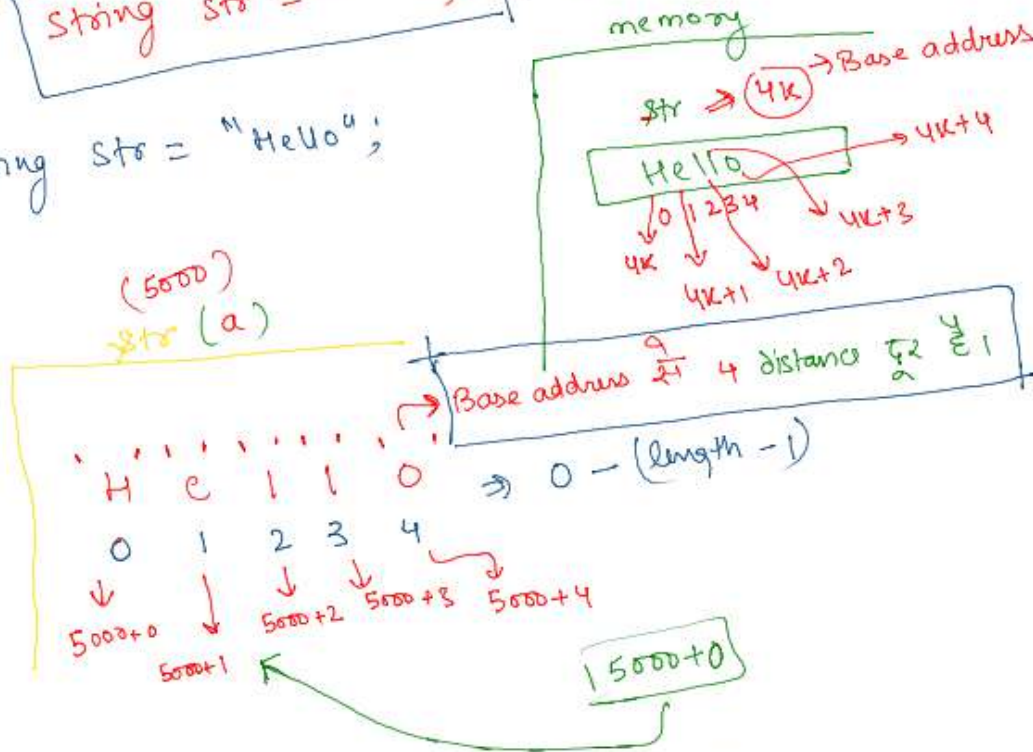 String str =
memory
str ⇒ 4K → Base address
ing str = "Hello";
Hello
4K+4
0 1 2 3 4
4K+3
4K
4K+1
4K+2
(5000)
str (a)
Base address से 4 distance
H e l l o ⇒ 0 - (length - 1)
0 1 2 3 4
5000+0
5000+1
5000+2
5000+3
5000+4
5000+0